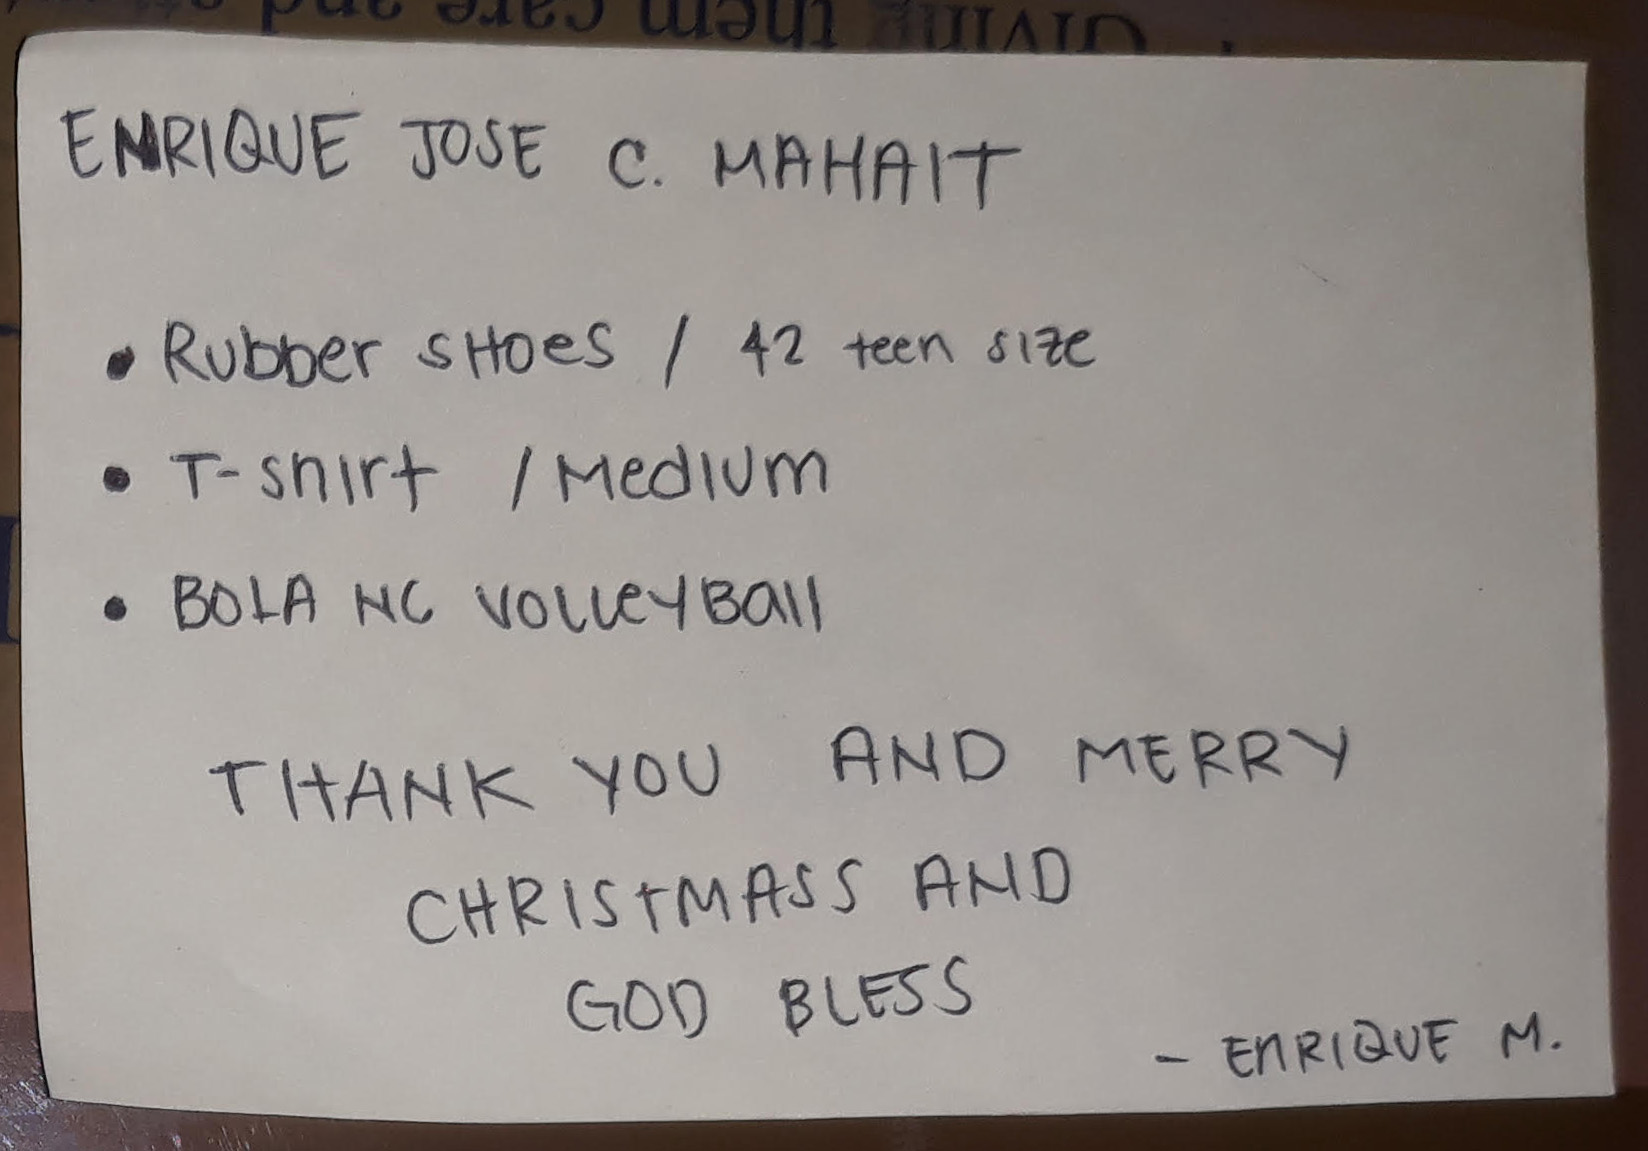 Giving them care and
ENRIQUE JOSE C. MAHAIT
• Rubber SHOES / 42 teen size
• T-shirt / Medium
• BOLA NG VOLLEYBall
THANK YOU AND MERRY
CHRIStMASS AND
GOD BLESS
- ENRIQUE M.